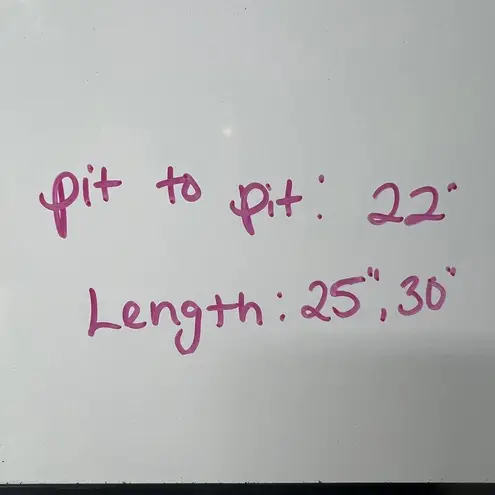 pit to pit: 22"
Length: 25", 30"